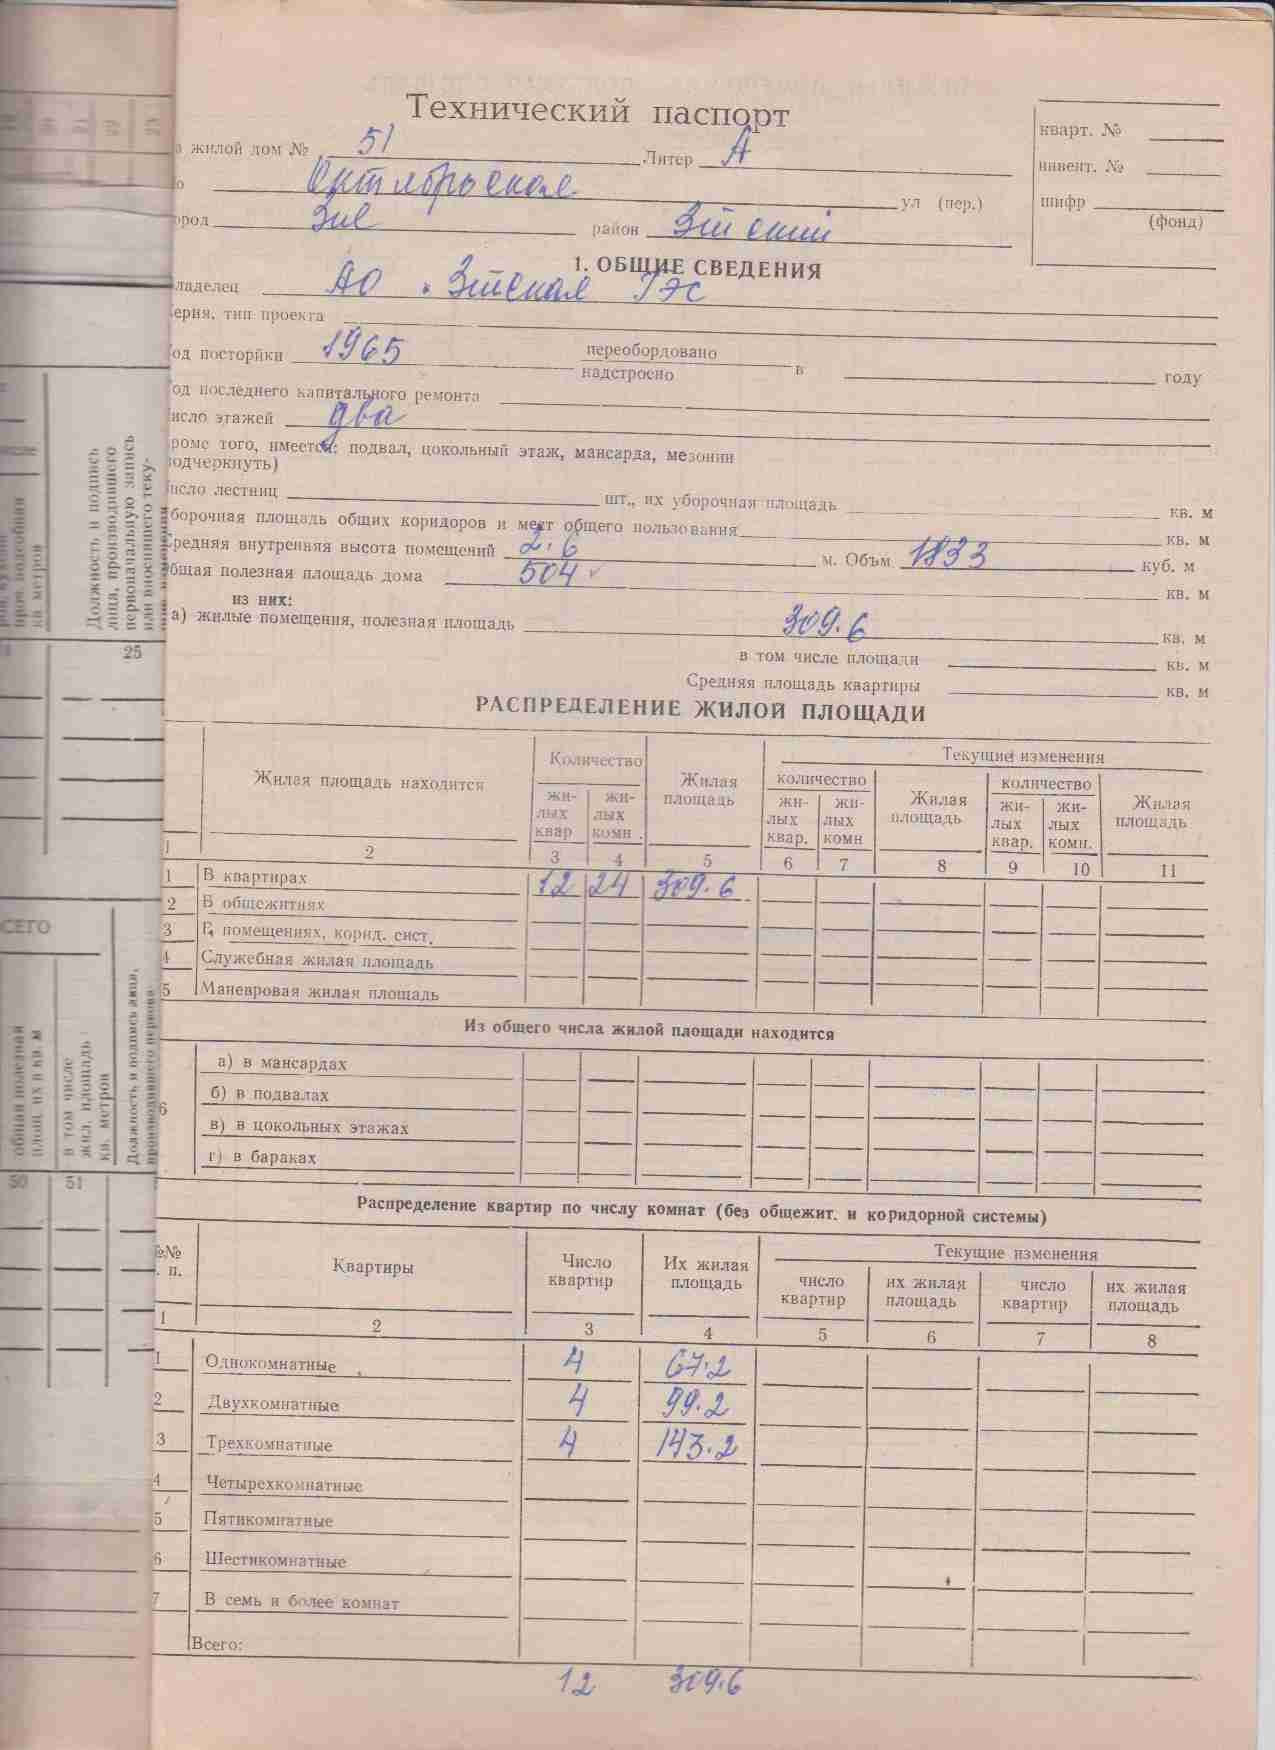 Технический паспорт
жилой дом № 51 Литер А
Октябрьская ул (пер.)
район Зейский
кварт. №
инвент. №
шифр
(фонд)
1. ОБЩИЕ СВЕДЕНИЯ
АО "Зейская ГЭС
тип проекта
посторйки 1965 переобордовано
надстроено в году
последнего капитального ремонта
этажей два
того, имеется: подвал, цокольный этаж, мансарда, мезонин
лестниц шт., их уборочная площадь кв. м
площадь общих коридоров и мест общего пользования кв. м
внутренняя высота помещений 2.6 м. Объм 1833 куб. м
полезная площадь дома 504 кв. м
из них:
а) жилые помещения, полезная площадь 309.6 кв. м
в том числе площади кв. м
Средняя площадь квартиры кв. м
РАСПРЕДЕЛЕНИЕ ЖИЛОЙ ПЛОЩАДИ
Жилая площадь находится
Количество
жи-
лых
квар
жи-
лых
комн.
Жилая
площадь
Текущие изменения
количество
жи-
лых
квар.
жи-
лых
комн
Жилая
площадь
количество
жи-
лых
квар.
жи-
лых
комн.
Жилая
площадь
1 2 3 4 5 6 7 8 9 10 11
1 В квартирах 12 24 309.6
2 В общежитиях
3 В помещениях, корид. сист.
4 Служебная жилая площадь
5 Маневровая жилая площадь
Из общего числа жилой площади находится
6
а) в мансардах
б) в подвалах
в) в цокольных этажах
г) в бараках
Распределение квартир по числу комнат (без общежит. и коридорной системы)
№№
п.
Квартиры
Число
квартир
Их жилая
площадь
Текущие изменения
число
квартир
их жилая
площадь
число
квартир
их жилая
площадь
1 2 3 4 5 6 7 8
1 Однокомнатные 4 67.2
2 Двухкомнатные 4 99.2
3 Трехкомнатные 4 143.2
4 Четырехкомнатные
5 Пятикомнатные
6 Шестикомнатные
7 В семь и более комнат
Всего:
12 309.6
Должность и подпись
лица, производившего
первоначальную запись
или вносившего теку-
кв метров
25
СЕГО
общая полезная
площ. их в кв. м
в том числе
жил. площадь
кв. метров
Должность и подпись лица,
50 51